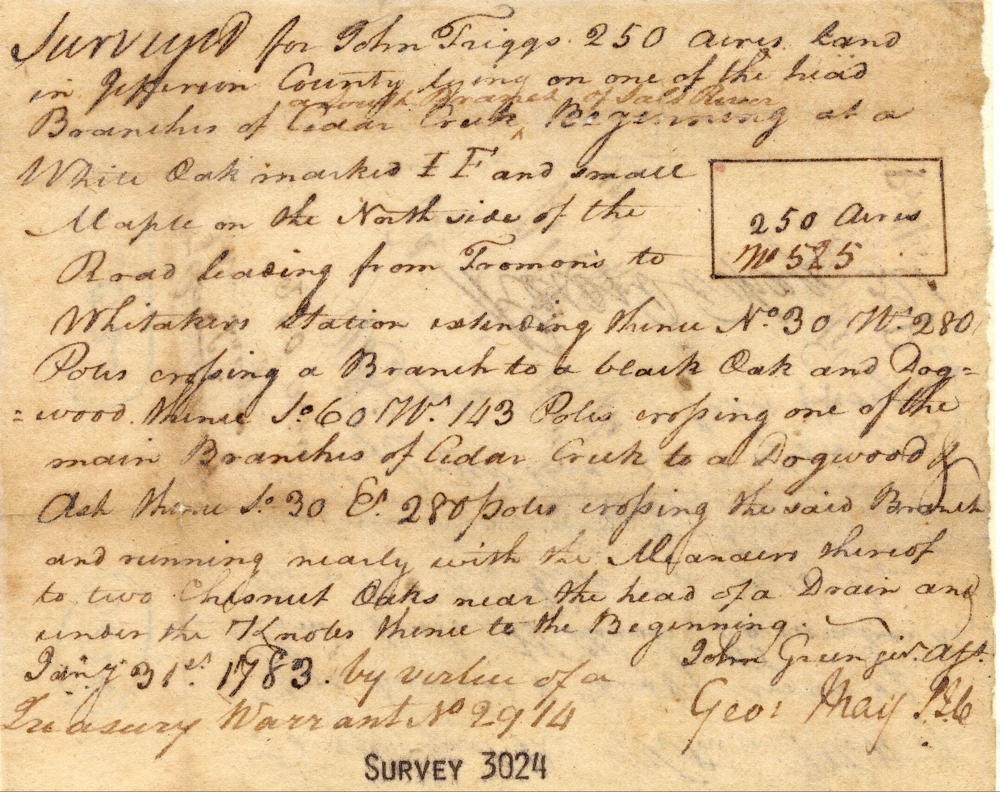 Surveyed for John Triggs 250 acres Land
in Jefferson County lying on one of the head
a south Branch of Salt River
Branches of Cedar Creek ^ Beginning at a
White Oak marked I F and small
Maple on the North side of the
Road leading from Fromon's to
250 Acres
No 525
Whitakers Station extending thence No. 30 Wt. 280
Poles crossing a Branch to a black Oak and Dog=
=wood. thence So 60 Wt. 143 Poles crossing one of the
main Branches of Cedar Creek to a Dogwood &
Ash thence So. 30 Et. 280 poles crossing the said Branch
and running nearly with the Meanders thereof
to two Chesnut Oaks near the head of a Drain and
under the Knobs thence to the Beginning.
John Green jur. asst.
Jan'y 31st 1783. by virtue of a
Treasury Warrant No 2914
Geo: May
SURVEY 3024